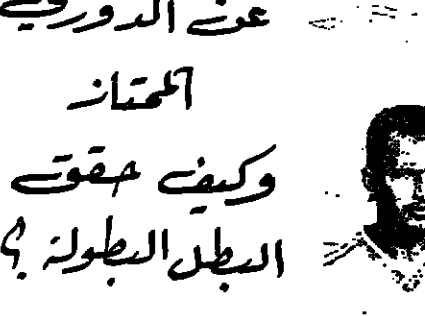 عن الدوري
الممتاز
وكيف حقق
البطل البطولة ؟